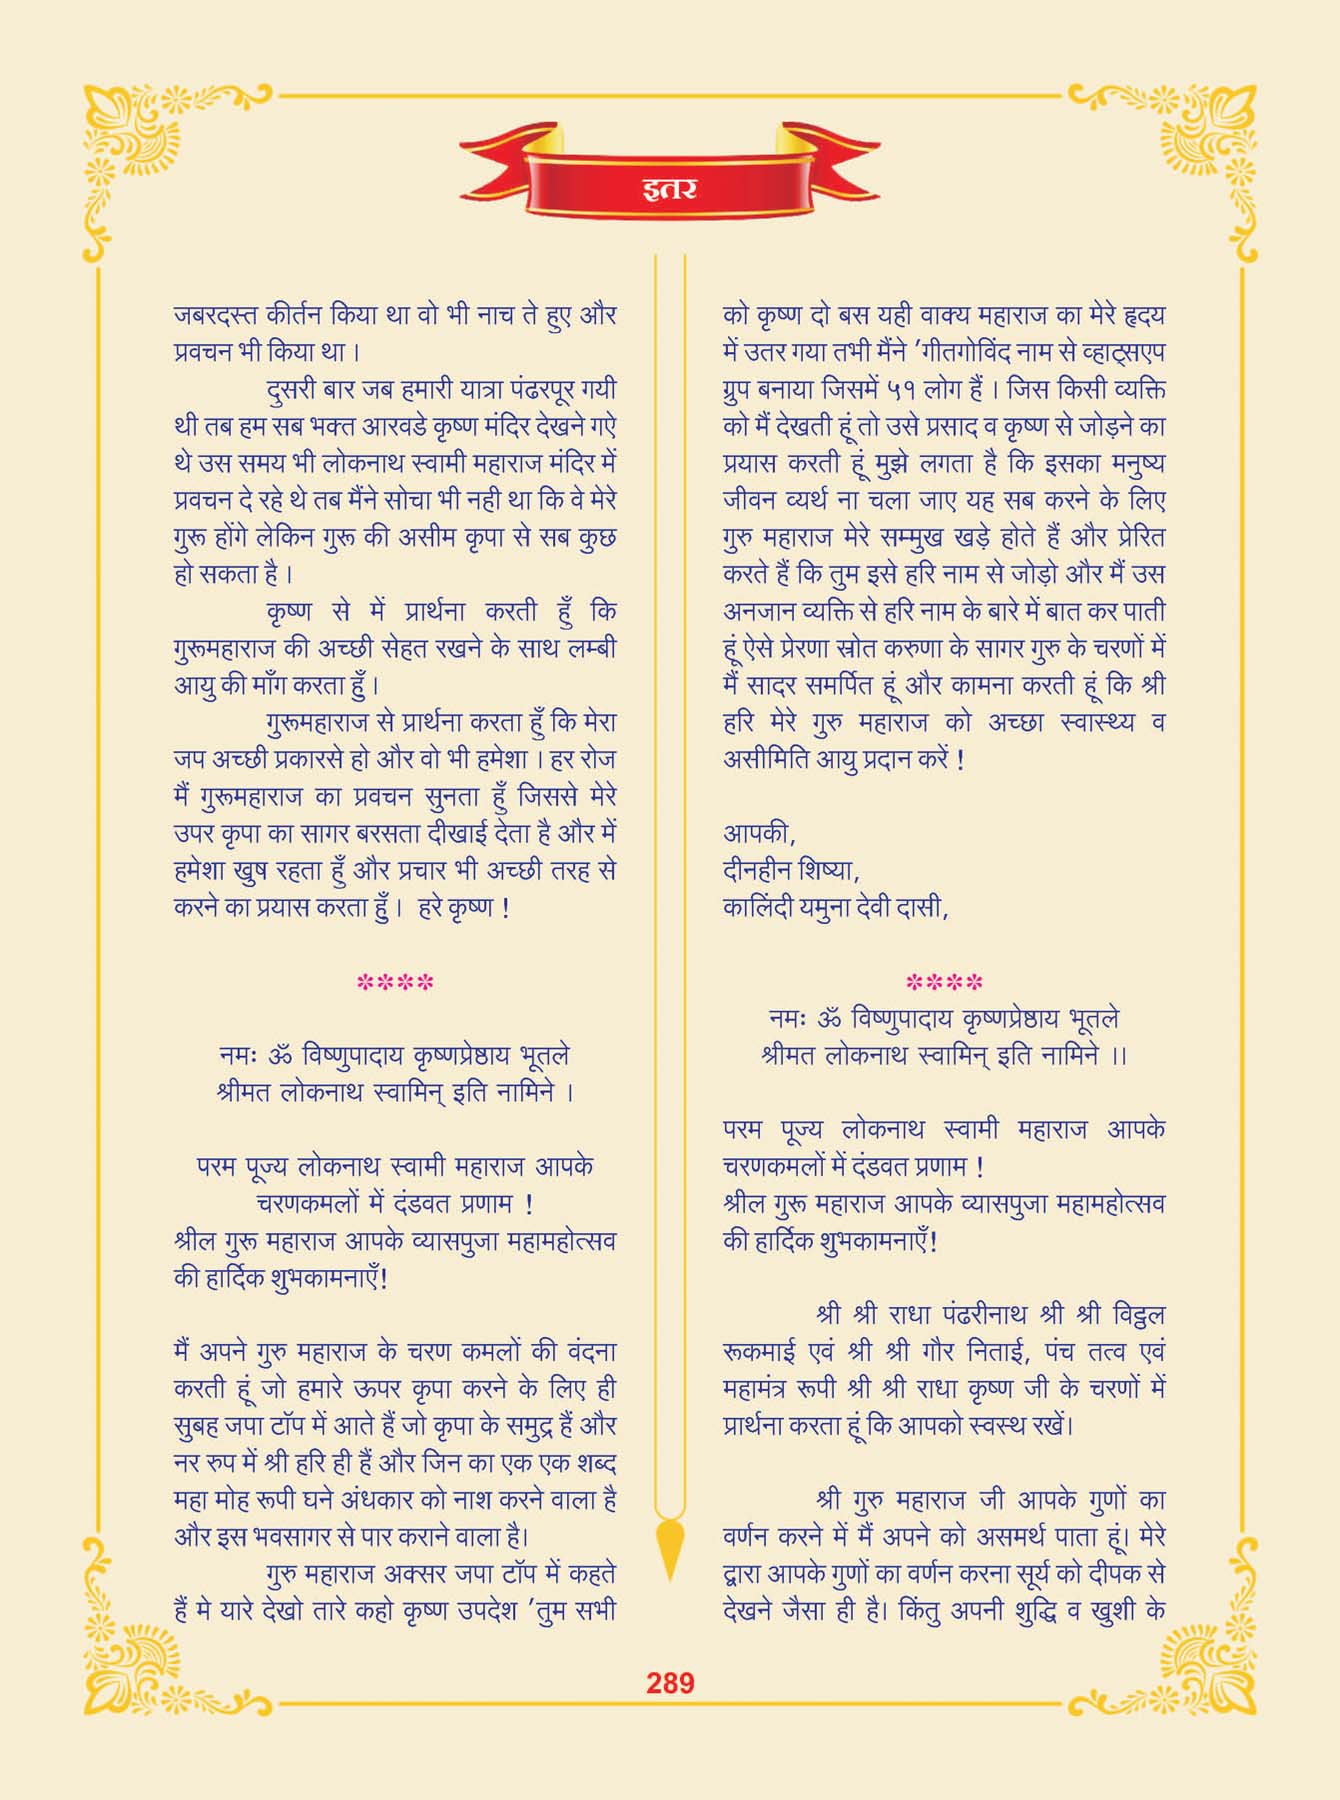 इतर
जबरदस्त कीर्तन किया था वो भी नाच ते हुए और
प्रवचन भी किया था ।
दुसरी बार जब हमारी यात्रा पंढरपूर गयी
थी तब हम सब भक्त आरवडे कृष्ण मंदिर देखने गऐ
थे उस समय भी लोकनाथ स्वामी महाराज मंदिर में
प्रवचन दे रहे थे तब मैंने सोचा भी नही था कि वे मेरे
गुरू होंगे लेकिन गुरू की असीम कृपा से सब कुछ
हो सकता है ।
कृष्ण से में प्रार्थना करती हुँ कि
गुरूमहाराज की अच्छी सेहत रखने के साथ लम्बी
आयु की माँग करता हुँ ।
गुरूमहाराज से प्रार्थना करता हुँ कि मेरा
जप अच्छी प्रकारसे हो और वो भी हमेशा । हर रोज
मैं गुरूमहाराज का प्रवचन सुनता हुँ जिससे मेरे
उपर कृपा का सागर बरसता दीखाई देता है और में
हमेशा खुष रहता हुँ और प्रचार भी अच्छी तरह से
करने का प्रयास करता हुँ । हरे कृष्ण !
****
नमः ॐ विष्णुपादाय कृष्णप्रेष्ठाय भूतले
श्रीमत लोकनाथ स्वामिन् इति नामिने ।
परम पूज्य लोकनाथ स्वामी महाराज आपके
चरणकमलों में दंडवत प्रणाम !
श्रील गुरू महाराज आपके व्यासपुजा महामहोत्सव
की हार्दिक शुभकामनाएँ!
मैं अपने गुरु महाराज के चरण कमलों की वंदना
करती हूं जो हमारे ऊपर कृपा करने के लिए ही
सुबह जपा टॉप में आते हैं जो कृपा के समुद्र हैं और
नर रुप में श्री हरि ही हैं और जिन का एक एक शब्द
महा मोह रूपी घने अंधकार को नाश करने वाला है
और इस भवसागर से पार कराने वाला है।
गुरु महाराज अक्सर जपा टॉप में कहते
हैं मे यारे देखो तारे कहो कृष्ण उपदेश ’तुम सभी
को कृष्ण दो बस यही वाक्य महाराज का मेरे हृदय
में उतर गया तभी मैंने ’गीतगोविंद नाम से व्हाट्सएप
ग्रुप बनाया जिसमें ५१ लोग हैं । जिस किसी व्यक्ति
को मैं देखती हूं तो उसे प्रसाद व कृष्ण से जोड़ने का
प्रयास करती हूं मुझे लगता है कि इसका मनुष्य
जीवन व्यर्थ ना चला जाए यह सब करने के लिए
गुरु महाराज मेरे सम्मुख खड़े होते हैं और प्रेरित
करते हैं कि तुम इसे हरि नाम से जोड़ो और मैं उस
अनजान व्यक्ति से हरि नाम के बारे में बात कर पाती
हूं ऐसे प्रेरणा स्रोत करुणा के सागर गुरु के चरणों में
मैं सादर समर्पित हूं और कामना करती हूं कि श्री
हरि मेरे गुरु महाराज को अच्छा स्वास्थ्य व
असीमिति आयु प्रदान करें !
आपकी,
दीनहीन शिष्या,
कालिंदी यमुना देवी दासी,
****
नमः ॐ विष्णुपादाय कृष्णप्रेष्ठाय भूतले
श्रीमत लोकनाथ स्वामिन् इति नामिने ।।
परम पूज्य लोकनाथ स्वामी महाराज आपके
चरणकमलों में दंडवत प्रणाम !
श्रील गुरू महाराज आपके व्यासपुजा महामहोत्सव
की हार्दिक शुभकामनाएँ!
श्री श्री राधा पंढरीनाथ श्री श्री विट्ठल
रूकमाई एवं श्री श्री गौर निताई, पंच तत्व एवं
महामंत्र रूपी श्री श्री राधा कृष्ण जी के चरणों में
प्रार्थना करता हूं कि आपको स्वस्थ रखें।
श्री गुरु महाराज जी आपके गुणों का
वर्णन करने में मैं अपने को असमर्थ पाता हूं। मेरे
द्वारा आपके गुणों का वर्णन करना सूर्य को दीपक से
देखने जैसा ही है। किंतु अपनी शुद्धि व खुशी के
289